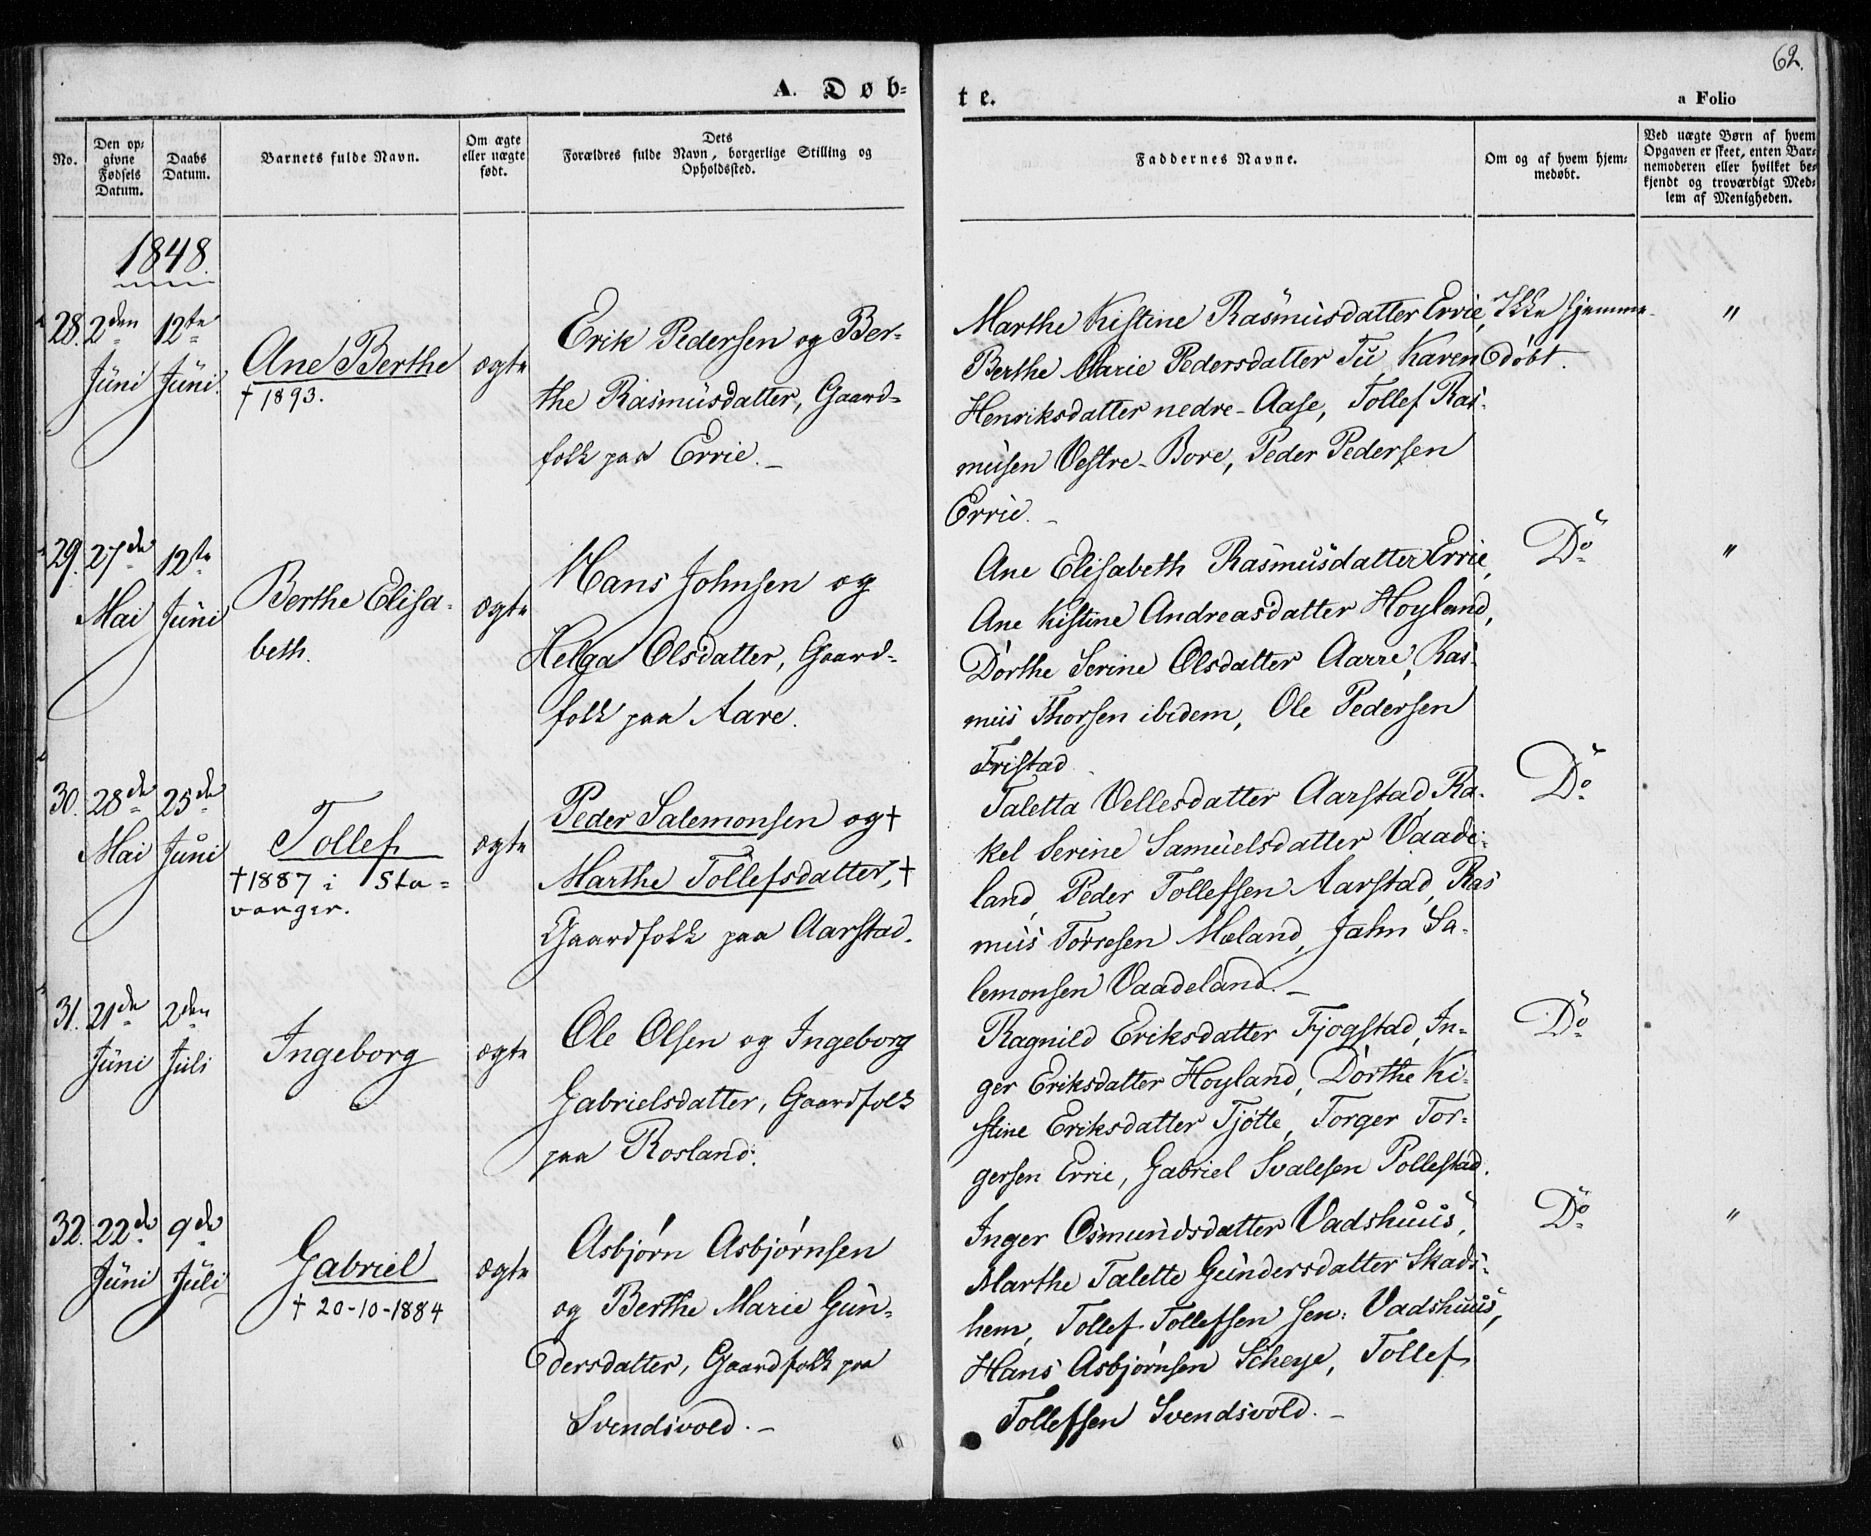 62.
A. Døb-
te.
a Folio
No.
Den op-
givne
Fødsels
Datum.
Daabs
Datum.
Barnets fulde Navn.
Om ægte
eller uægte
født.
Dets
Forældres fulde Navn, borgerlige Stilling og
Opholdssted.
Faddernes Navne.
Om og af hvem hjem-
medøbt.
Ved uægte Børn af hvem
Opgaven er skeet, enten Bar-
nemoderen eller hvilket be-
kjendt og troværdigt Med-
lem af Menigheden.
1848.
28.
2den
Juni
12te
Juni.
Ane Berthe
† 1893.
ægte
Erik Pedersen og Ber-
the Rasmusdatter, Gaard-
folk paa Errie.
Marthe Kistine Rasmusdatter Errie,
Berthe Marie Pedersdatter Tu, Karen
Henriksdatter nedre-Aase, Tollef Ras-
musen Vestre-Bore, Peder Pedersen
Errie.
Ikke hjemme-
døbt.
"
29.
27de
Mai
12te
Juni
Berthe Elisa-
beth.
ægte
Hans Johnsen og
Helga Olsdatter, Gaard-
folk paa Aare.
Ane Elisabeth Rasmusdatter Errie,
Ane Kistine Andreasdatter Hoyland,
Dorthe Serine Olsdatter Aarre, Ras-
mus Thorsen ibidem, Ole Pedersen
Fristad
Do
"
30.
28de
Mai
25de
Juni
Tollef
† 1887 i Sta-
vanger.
ægte
Peder Salemonsen og †
Marthe Tollefsdatter, †
Gaardfolk paa Aarstad.
Taletta Vellesdatter Aarstad, Ra-
kel Serine Samuelsdatter Vaade-
land, Peder Tollefsen Aarstad, Ras
mus Torresen Mæland, Jahn Sa-
lemonsen Vaadeland.
Do
31.
21de
Juni
2den
Juli
Ingeborg
ægte
Ole Olsen og Ingeborg
Gabrielsdatter, Gaardfolk
paa Rosland.
Ragnild Eriksdatter Fjogstad, In-
ger Eriksdatter Hoyland, Dorthe Ki-
stine Eriksdatter Tjøtte, Torger Tor-
gersen Errie, Gabriel Svalesen Pollestad.
Do
32.
22de
Juni
9de
Juli
Gabriel
† 20-10-1884
ægte
Asbjørn Asbjørnsen
og Berthe Marie Gun-
dersdatter, Gaardfolk paa
Svendsvold.
Inger Osmundsdatter Vadshuus,
Marthe Talette Gundersdatter Skads-
hem, Tollef Tollefsen sen: Vadshuus,
Hans Asbjørnsen Scheye, Tollef
Tollefsen Svendsvold.
Do
"